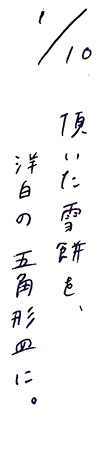 1/10
頂いた雪餅を、
洋白の五角形皿に。